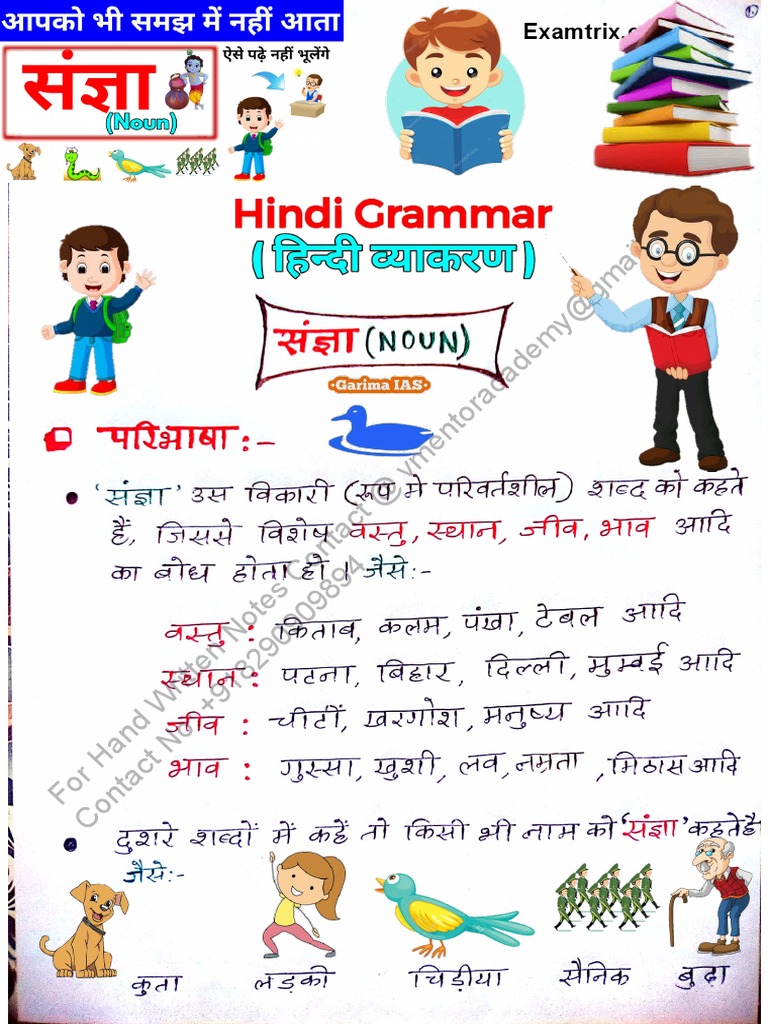 आपको भी समझ में नहीं आता
संज्ञा
(Noun)
ऐसे पढ़े नहीं भूलेंगे
Examtrix.c
Hindi Grammar
(हिन्दी व्याकरण)
संज्ञा (NOUN)
•Garima IAS•
परिभाषा:-
• 'संज्ञा' उस विकारी (रूप मे परिवर्तशील) शब्द को कहते
हैं, जिससे विशेष वस्तु, स्थान, जीव, भाव आदि
का बोध होता हो। जैसे:-
वस्तु : किताब, कलम, पंखा, टेबल आदि
स्थान : पटना, बिहार, दिल्ली, मुम्बई आदि
जीव : चीटीं, खरगोश, मनुष्य आदि
भाव : गुस्सा, खुशी, लव, नम्रता, मिठास आदि
• दुशरे शब्दों में कहें तो किसी भी नाम को 'संज्ञा' कहते है
जैसे:-
कुता लड़की चिड़ीया सैनिक बुढ़ा
For Hand Written Notes Contact @ vmentoracademy@gmai
Contact No. +918290909894